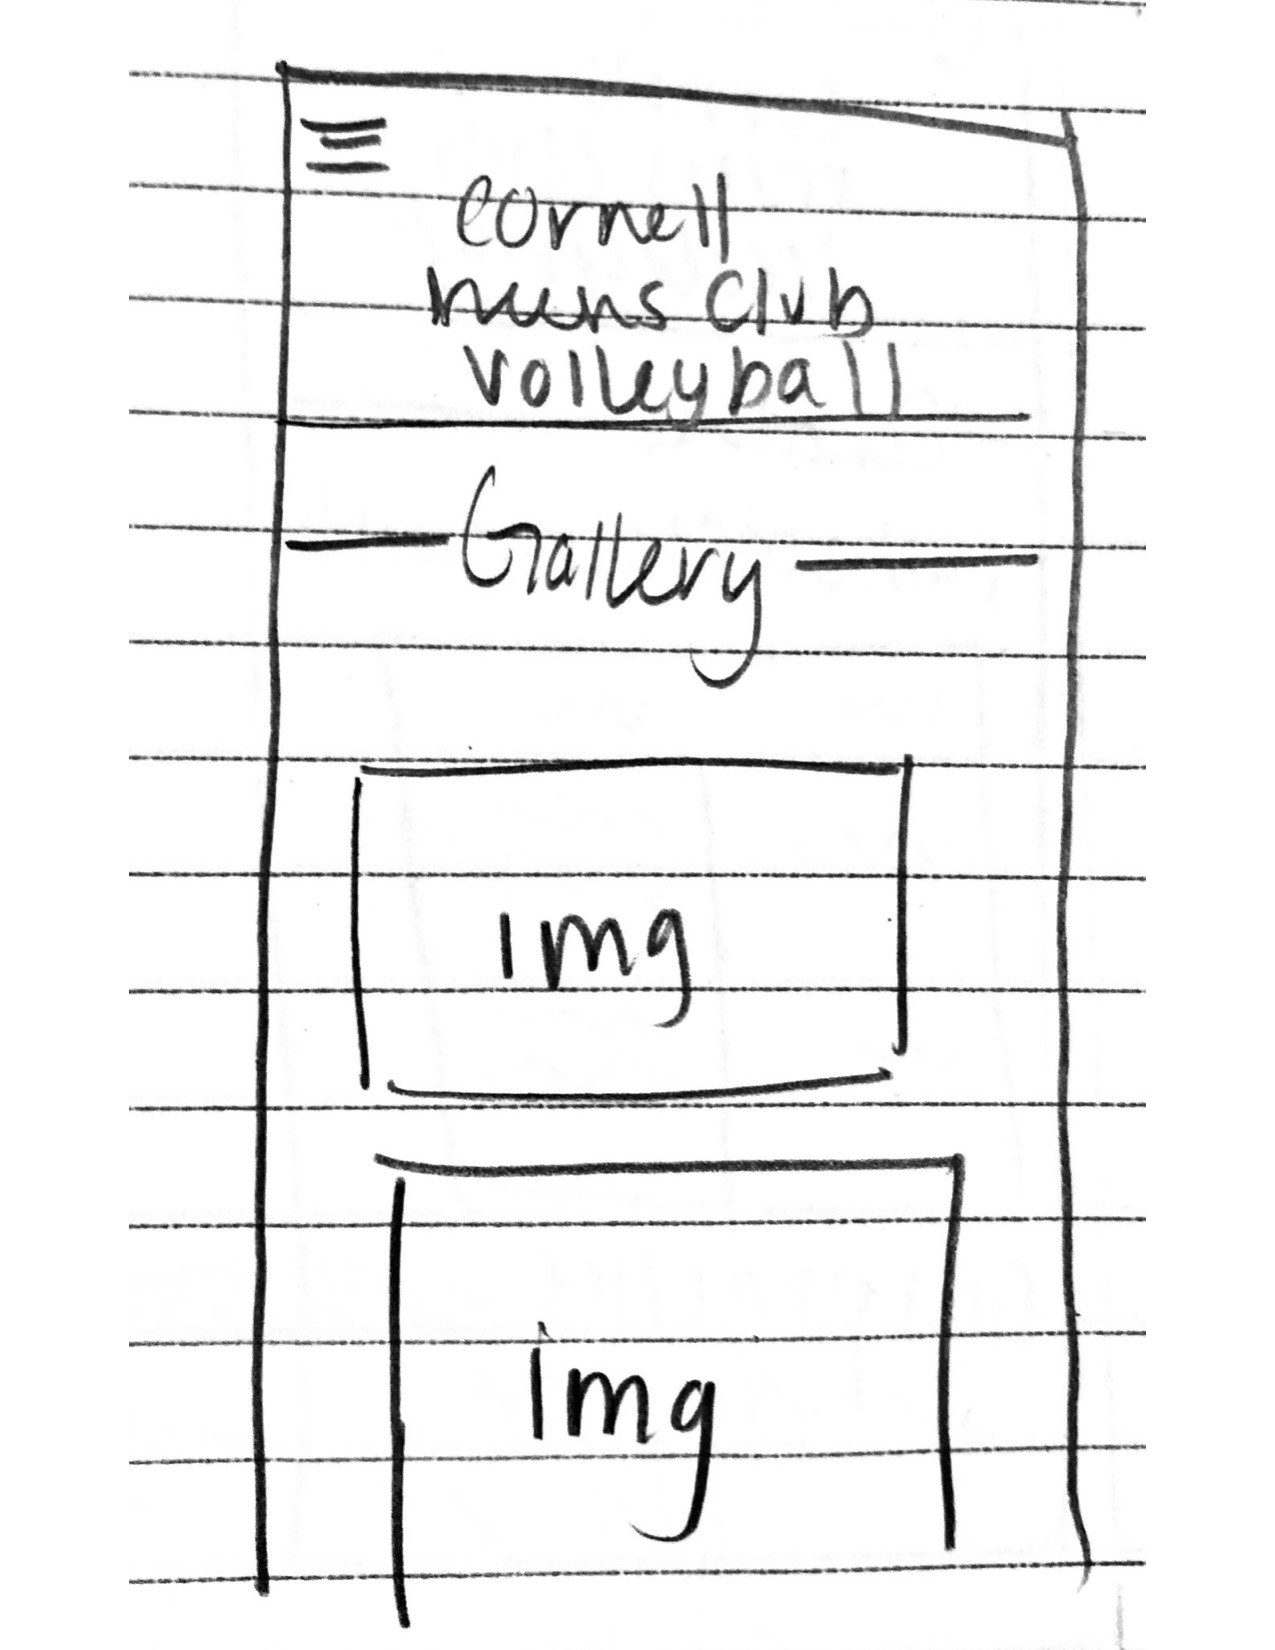 cornell
mens club
volleyball
Gallery
img
img